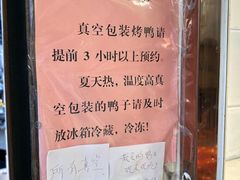 真空包装烤鸭请
提前 3 小时以上预约。
夏天热，温度高真
空包装的鸭子请及时
放冰箱冷藏，冷冻！
所有真空